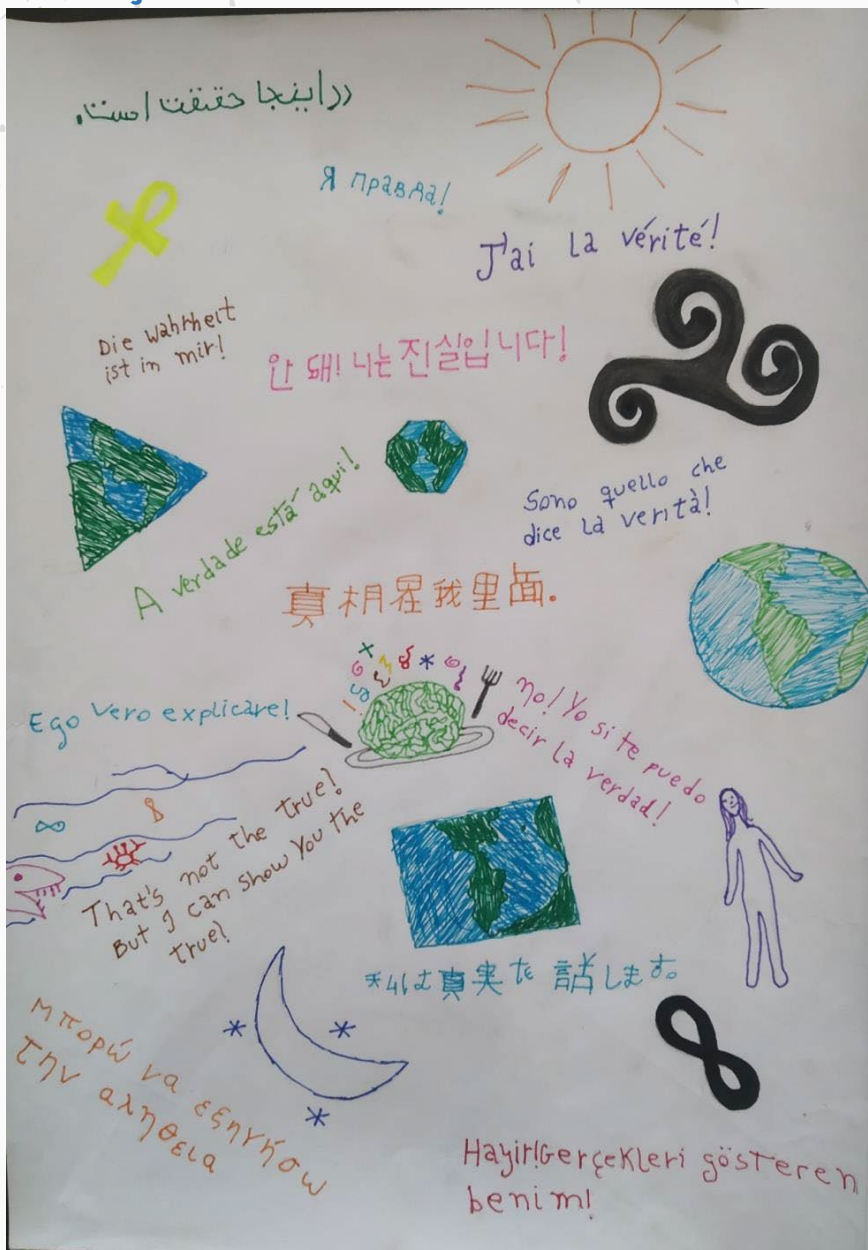 دراینجا حقیقت است.
Я правда!
J'ai la vérité!
Die wahrheit
ist in mir!
안 돼! 나는 진실입니다!
A verdade está aqui!
Sono quello che
dice la verità!
真相 我里面.
Ego vero explicare!
no! Yo si te puedo
decir la verdad!
That's not the true!
But I can show You The
true!
私は真実を話します。
Μπορώ να εξηγήσω
την αλήθεια
Hayir!Gerçekleri gösteren
benim!